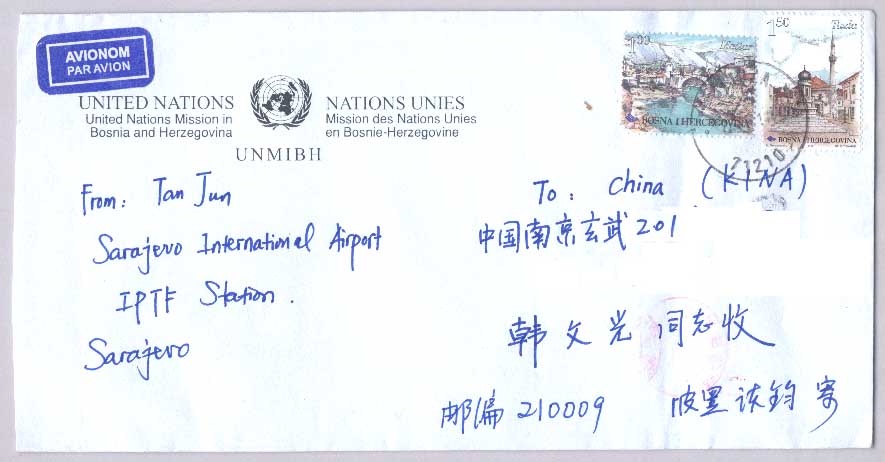 AVIONOM
PAR AVION
UNITED NATIONS
United Nations Mission in
Bosnia and Herzegovina
NATIONS UNIES
Mission des Nations Unies
en Bosnie-Herzegovine
UNMIBH
1.00
BOSNA I HERCEGOVINA
1.50
BOSNA I HERCEGOVINA
71210
From: Tan Jun
Sarajevo International Airport
IPTF Station.
Sarajevo
To: China (KINA)
中国南京玄武201
韩文光 同志收
邮编 210009 波黑 谈钧 寄